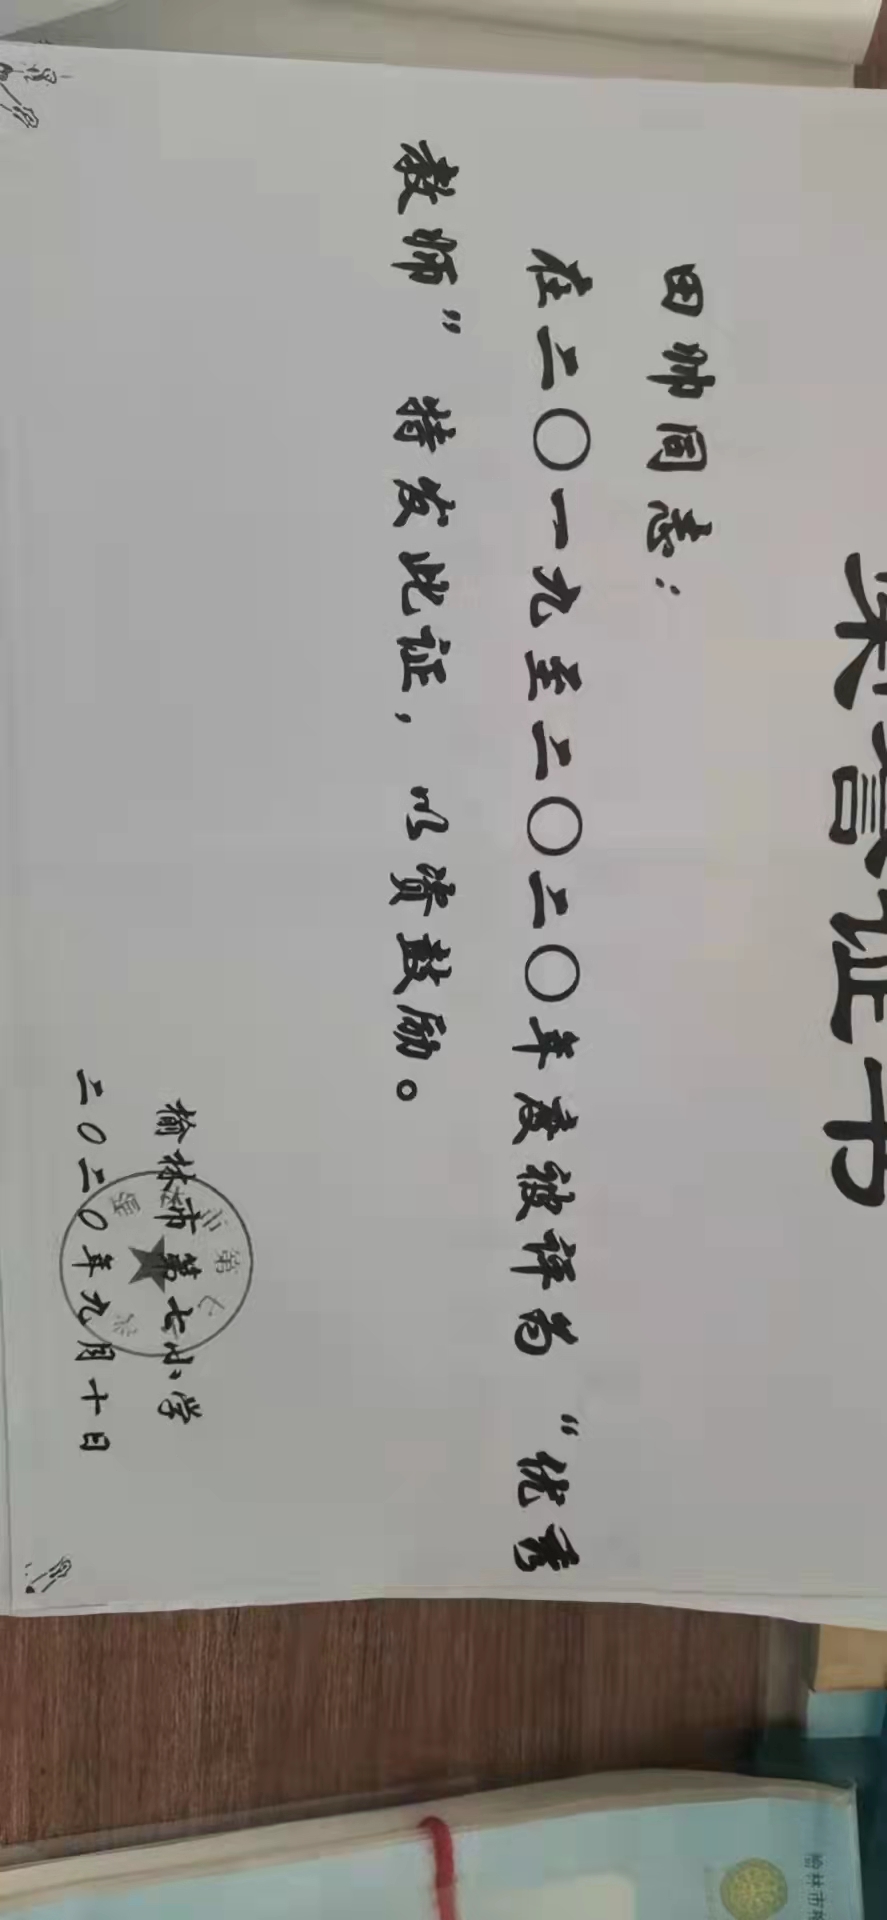 荣誉证书
田帅同志：
在二〇一九至二〇二〇年度被评为“优秀
教师”特发此证，以资鼓励。
榆林市第七小学
二〇二〇年九月十日
榆林市